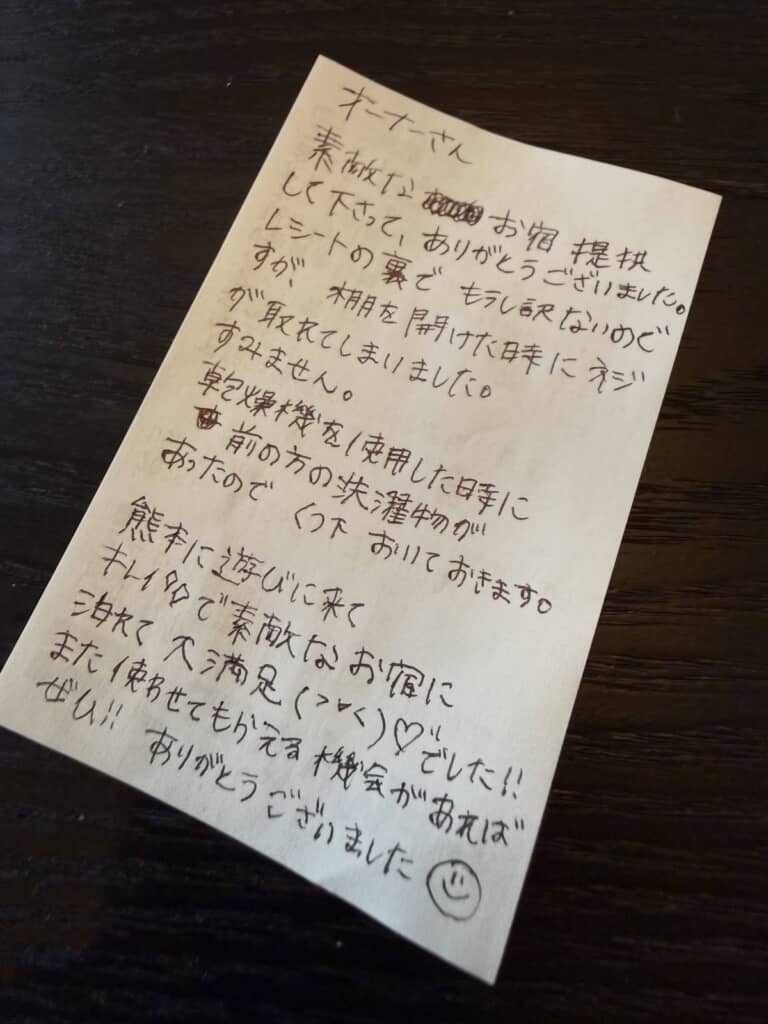 オーナーさん
素敵な お宿 提供
して下さって、ありがとうございました。
レシートの裏で もうし訳ないので
すが、棚を開けた時にネジ
が取れてしまいました。
すみません。
乾燥機を使用した時に
前の方の洗濯物が
あったので くつ下 おいておきます。
熊本に遊びに来て
キレイで素敵なお宿に
泊れて大満足(>▽<)♡でした!!
また使わせてもらえる機会があれば
ぜひ!! ありがとう
ございました